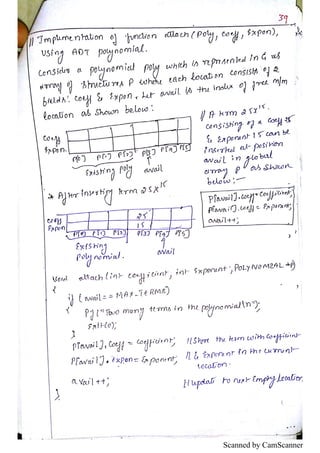 39
// Implementation of function attach (Poly, Coeff, Expon),
Using ADT polynomial.
Consider a polynomial poly which is represented in G as
array of structures P where each location consists of 2
fields: coeff & Expon. Let avail is the index of free mem
location as shown below:
Coeff
Expon
P[0] P[1] P[2] P[3] P[4] P[5]
Existing Poly avail
// A term 25x^15.
consisting of a coeff 25
& Exponent 15 can be
inserted at position
avail in global
array P as shown
below:-
* After Inserting term 25x^15
P[avail].coeff = Coefficient;
P[avail].coeff = Exponent;
avail++;
coeff 25
Expon 15
P[0] P[1] P[2] P[3] P[4] P[5]
Existing
Polynomial. avail
void attach (int coefficient, int Exponent, POLYNOMIAL *p)
{
if (avail == MAX-TERMS)
{
pf("Two many terms in the polynomial\n");
Exit(0);
}
P[avail].Coeff = coefficient; //Store the term with coefficient
P[avail].expon = Exponent; // & Exponent in the current
location.
avail++; // update to next Empty location
}
Scanned by CamScanner